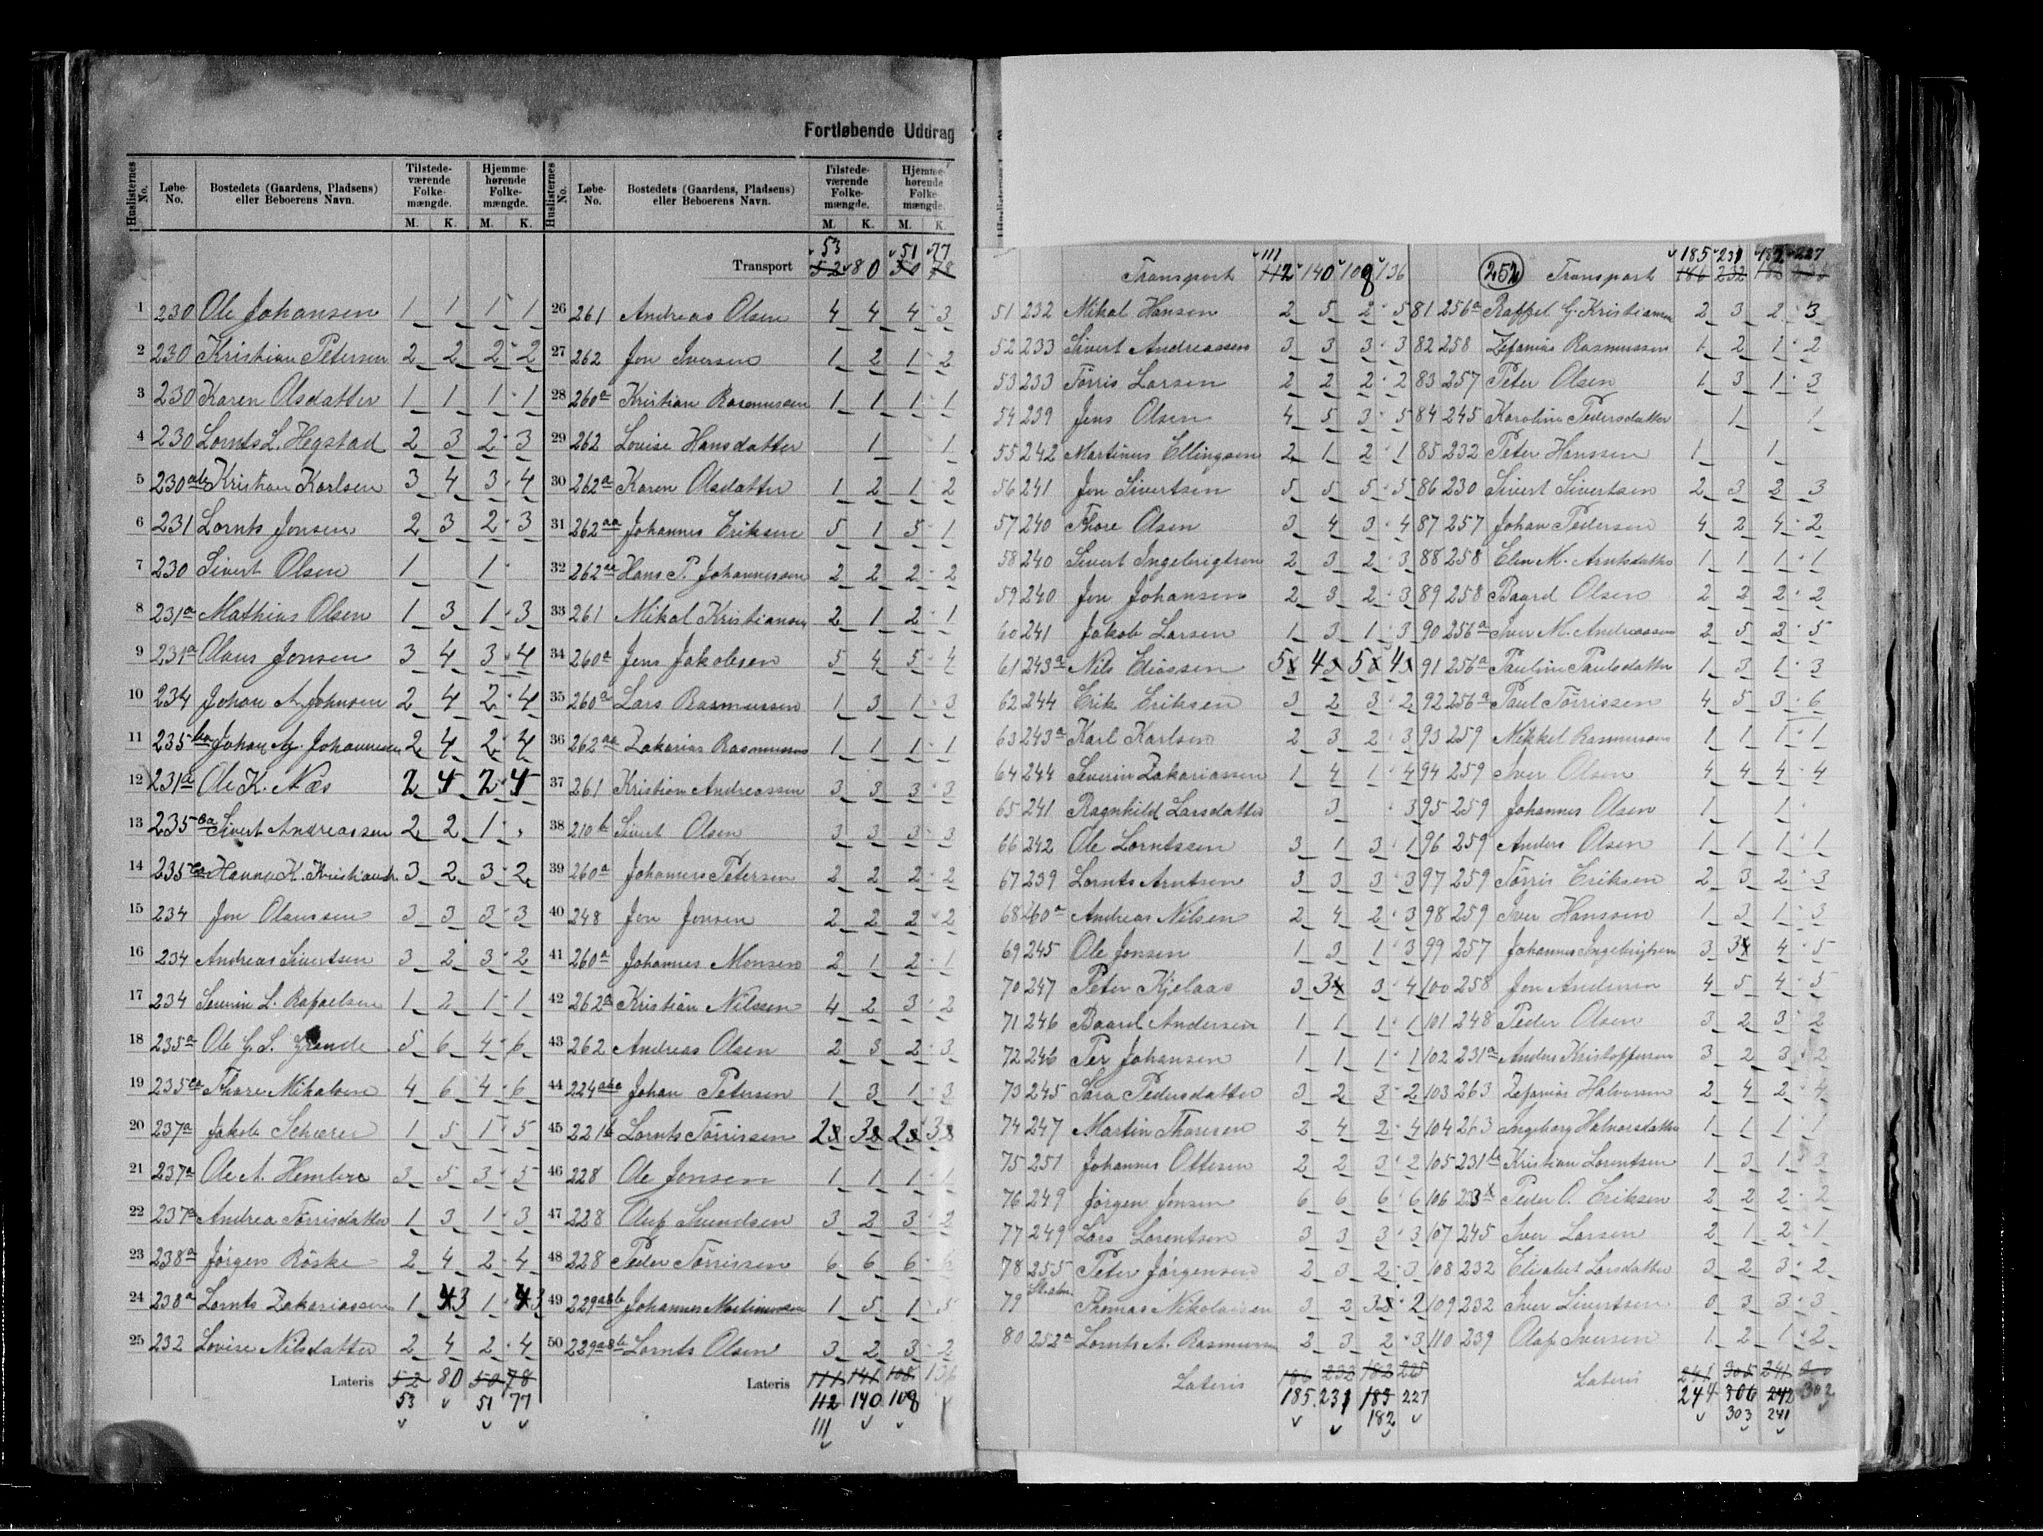 Fortløbende Uddrag
Huslisternes No. Løbe-No. Bostedets (Gaardens, Pladsens) eller Beboerens Navn. Tilstedeværende Folkemængde. M. K. Hjemmehørende Folkemængde. M. K.
1 230 Ole Johansen 1 1 1 1
2 230 Kristian Petersen 2 2 2 2
3 230 Karen Olsdatter 1 1 1 1
4 230 Lornts L. Hegstad 2 3 2 3
5 230 Kristian Karlsen 3 4 3 4
6 231 Lornts Jonsen 2 3 2 3
7 230 Sivert Olsen 1 1
8 231a Mathias Olsen 1 3 1 3
9 231a Olaus Jonsen 3 4 3 4
10 234 Johan A. Johnsen 2 4 2 4
11 235 Johan Johannesen 2 4 2 4
12 231a Ole K. Næs 2 4 2 4
13 235 Sivert Andreassen 2 2 1
14 235 Hanna K. Kristiansdr 3 2 3 2
15 234 Jon Olaussen 3 3 3 3
16 234 Andreas Sivertsen 3 2 3 2
17 234 Severin L. Rafaelsen 1 2 1 1
18 235a Ole G. S. Grande 5 6 4 6
19 235 Thore Mikalsen 4 6 4 6
20 237a Jakob Scherer 1 5 1 5
21 237a Ole A. Hembre 3 5 3 5
22 237a Andrea Tørrisdatter 1 3 1 3
23 238a Jørgen Röske 2 4 2 4
24 238a Lornts Zakariassen 1 3 1 3
25 232 Lovise Nilsdatter 2 4 2 4
Lateris 52 80 50 78
53 51 77
Huslisternes No. Løbe-No. Bostedets (Gaardens, Pladsens) eller Beboerens Navn. Tilstedeværende Folkemængde. M. K. Hjemmehørende Folkemængde. M. K.
53 51 77
Transport 52 80 50 78
26 261 Andreas Olsen 4 4 4 3
27 262 Jon Iversen 1 2 1 2
28 260a Kristian Rasmussen 1 1 1 1
29 262 Lovise Hansdatter 1 1
30 262a Karen Olsdatter 1 2 1 2
31 262aa Johannes Eriksen 5 1 5 1
32 262 Hans P. Johannessen 2 2 2 2
33 261 Mikal Kristiansen 2 1 2 1
34 260a Jens Jakobsen 5 4 5 4
35 260a Lars Rasmussen 1 3 1 3
36 262aa Zakarias Rasmussen 1 1 1 1
37 261 Kristian Andreassen 3 3 3 3
38 210b Sivert Olsen 3 3 3 3
39 260a Johannes Petersen 2 2 2 2
40 248 Jon Jonsen 2 2 2 2
41 260a Johannes Monsen 2 1 2 1
42 262a Kristian Nilssen 4 2 3 2
43 262 Andreas Olsen 2 3 2 3
44 224 Johan Petersen 1 3 1 3
45 221b Lornts Tørrissen 2 3 2 3
46 228 Ole Jonsen 1 1 1 1
47 228 Oluf Svendsen 3 2 3 2
48 228 Peder Tørrissen 6 6 6 6
49 229 Johannes Martinussen 1 5 1 5
50 229 Lornts Olsen 3 2 3 2
Lateris 111 141 108 136
112 140 108
111
111
Transport 112 140 108 136
51 232 Mikal Hansen 2 5 2 5
52 233 Sivert Andreassen 3 3 3 3
53 233 Törris Larsen 2 2 2 2
54 239 Jens Olsen 4 5 3 5
55 242 Martinus Ellingsen 2 1 2 1
56 241 Jon Sivertsen 5 5 5 5
57 240 Thore Olsen 3 4 3 4
58 240 Sivert Ingebrigtsen 2 3 2 3
59 240 Jon Johansen 2 3 2 3
60 241 Jakob Larsen 1 3 1 3
61 243a Nils Eliassen 5 4 5 4
62 244 Erik Eriksen 3 2 3 2
63 243a Karl Karlsen 2 3 2 3
64 244 Severin Zakariassen 1 4 1 4
65 241 Ragnhild Larsdatter 3 3
66 242 Ole Lorntssen 3 1 3 1
67 239 Lornts Arntsen 3 3 3 3
68 260a Andreas Nilsen 2 4 2 3
69 245 Ole Jonsen 1 3 1 3
70 247 Peter Kjelaas 3 3 3 4
71 246 Baard Andersen 1 1 1 1
72 246 Per Johansen 1 1 1 1
73 245 Sara Pedersdatter 3 2 3 2
74 247 Martin Thonsen 2 4 2 4
75 251 Johannes Ottesen 2 2 3 2
76 249 Jørgen Jonsen 6 6 6 6
77 249 Lars Lorentsen 3 3 3 3
78 255 Peter Jørgensen 2 3 2 3
79 Thomas Nikolaisen 3 2 3 2
80 252a Lornts A. Rasmussen 2 3 2 3
Lateris 186 232 182 225
185 231 183 227
182
185 231 182 227
252 Transport 186 232
81 256a Raffel G. Kristiansen 2 3 2 3
82 258 Zefanias Rasmussen 1 2 1 2
83 257 Peter Olsen 1 3 1 3
84 245 Karoline Pedersdatter 1 1
85 232 Peter Hanssen 1 1
86 230 Sivert Sivertsen 2 3 2 3
87 257 Johan Pedersen 4 2 4 2
88 258 Elen M. Arntsdatter 1 1 1 1
89 258 Baard Olsen 2 2 2 2
90 256a Iver M. Andreassen 2 5 2 5
91 256a Pauline Paulsdatter 1 3 1 3
92 256a Paul Tørrissen 4 5 3 6
93 259 Mikkel Rasmussen 1 1 1 1
94 259 Iver Olsen 4 4 4 4
95 259 Johannes Olsen 1 1
96 259 Anders Olsen 1 1 1 1
97 259 Tørris Eriksen 2 3 2 3
98 259 Iver Hanssen 1 3 1 3
99 257 Johannes Ingebrigtsen 3 3 4 5
100 258 Jon Andersen 4 5 4 5
101 248 Peder Olsen 3 2 3 2
102 231a Anders Kristoffersen 3 2 3 2
103 263 Zefanias Halvorsen 2 4 2 4
104 263 Ingeborg Halvorsdatter 1 1 1 1
105 231b Kristian Lorentsen 1 3 1 3
106 233 Peder O. Eriksen 2 2 2 2
107 245 Iver Larsen 2 1 2 1
108 232 Elisabet Larsdatter 3 2 3 2
109 232 Iver Sivertsen 0 3 3 3
110 239 Olaf Iversen 1 2 1 2
Lateris 241 305 241 300
244 306 242 302
303 241